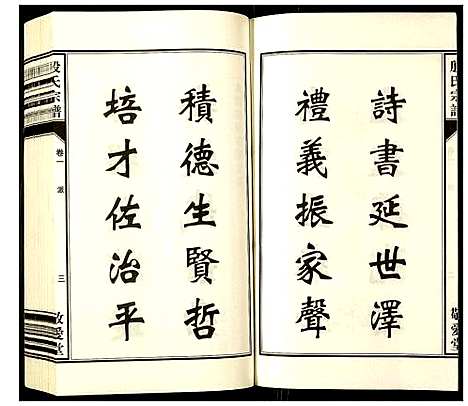 詩書延世澤
禮義振家聲
積德生賢哲
培才佐治平
殷氏宗譜
卷一
派
三
敬愛堂
殷氏宗譜
敬愛堂